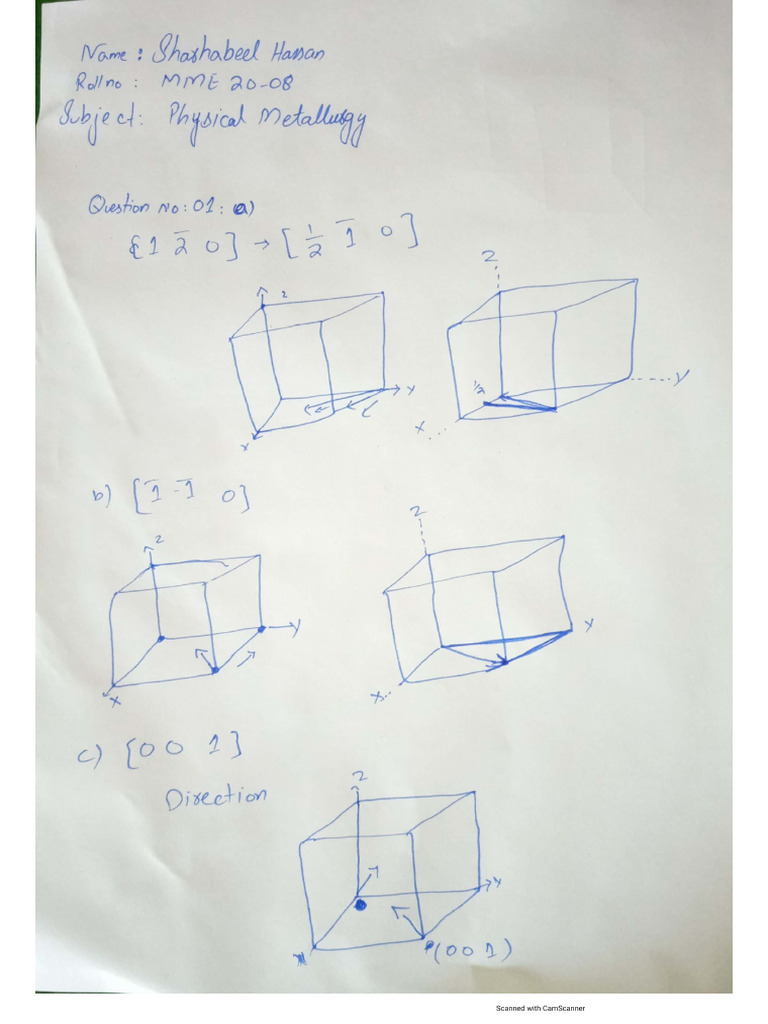 Name : Sharhabeel Hassan
Roll no : MME 20-08
Subject: Physical Metallurgy
Question No: 01: a)
[1 2̅ 0] → [1/2 1̅ 0]
Z
z
y
1/2
y
x
x
b) [1̅ -1̅ 0]
z
Z
y
y
x
x
c) [0 0 1]
Direction
z
y
x
(0 0 1)
Scanned with CamScanner